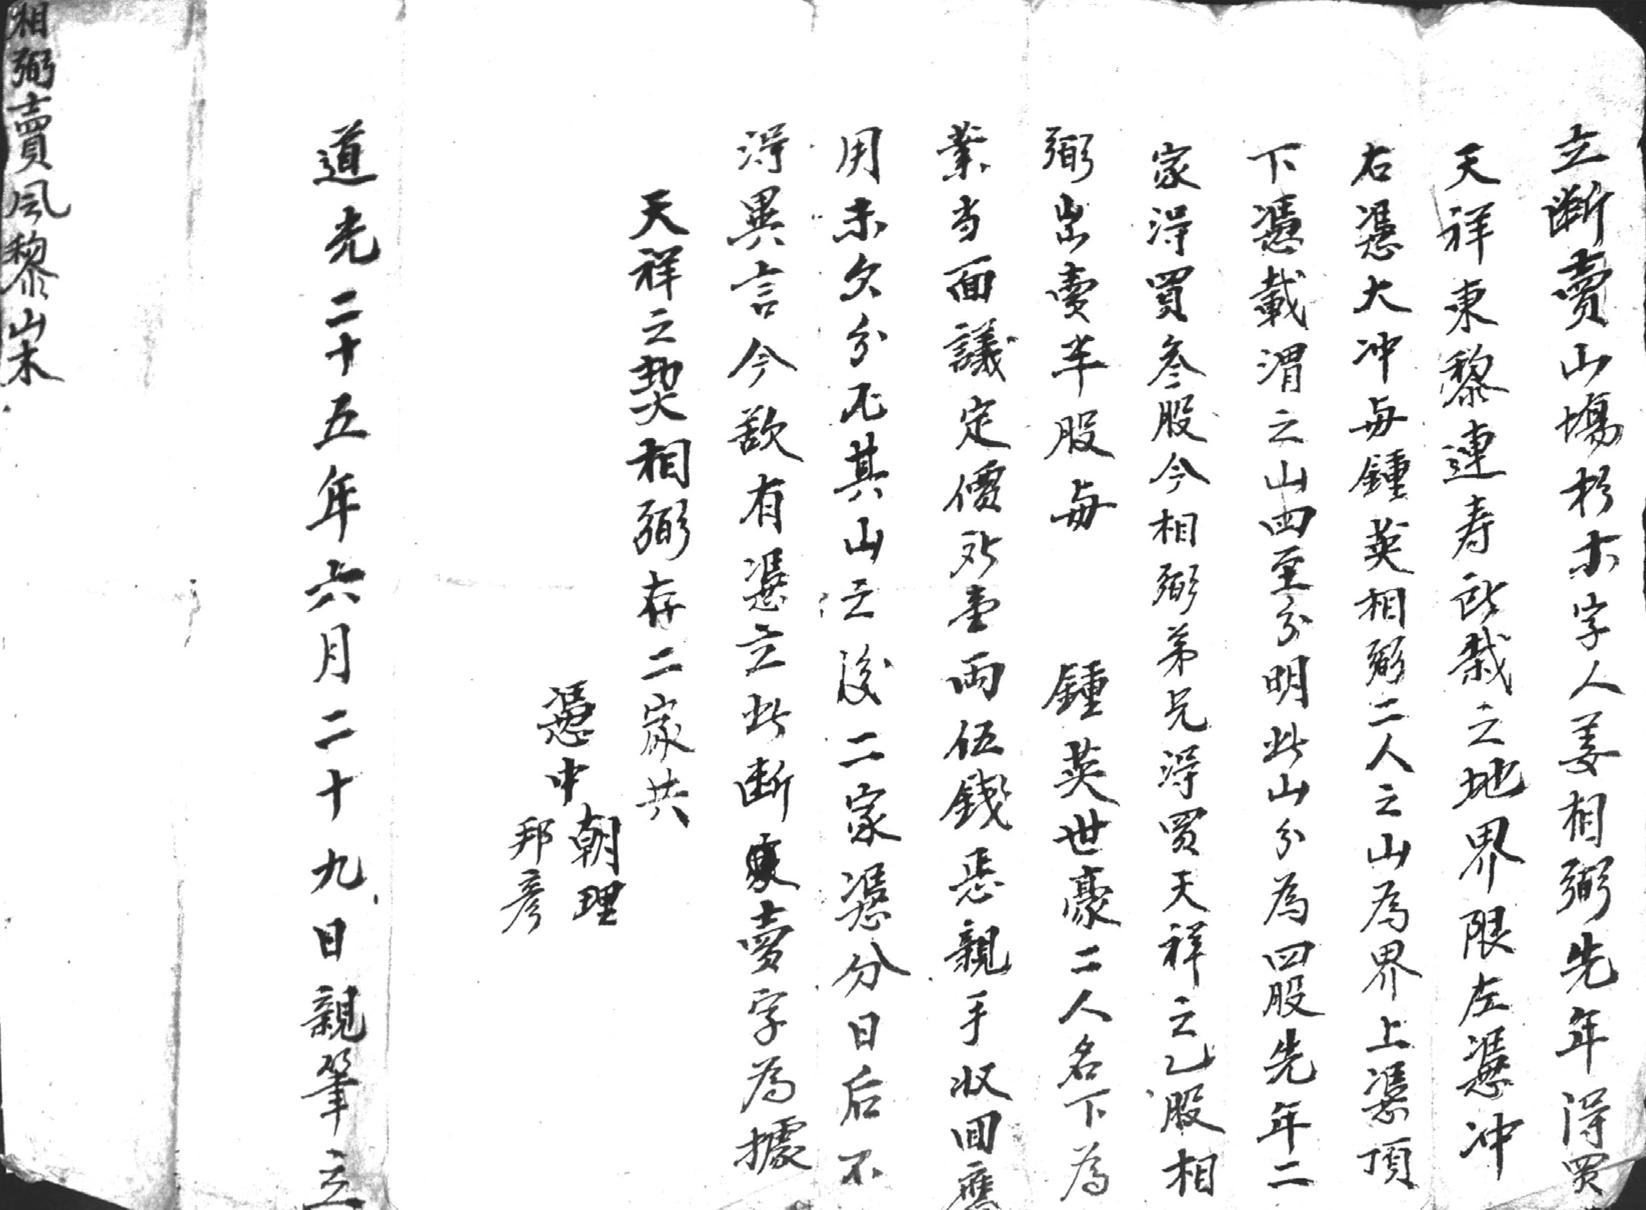 立断賣山塲杉木字人姜相弼先年得買
天祥東黎連寿所栽之地界限左憑冲
右憑大冲與鍾英相弼二人之山為界上憑頂
下憑載渭之山四至分明此山分為四股先年二
家得買叁股今相弼弟兄得買天祥之乙股相
弼出賣半股與 鍾英世豪二人名下為
業当面議定價艮壹両伍錢悉親手収回應
用未欠分厘其山之後二家憑分日后不
得異言今欲有憑立此断賣字為據
天祥之契相弼存二家共
憑中 朝理
邦彦
道光二十五年六月二十九日親筆立
相弼賣風黎山木